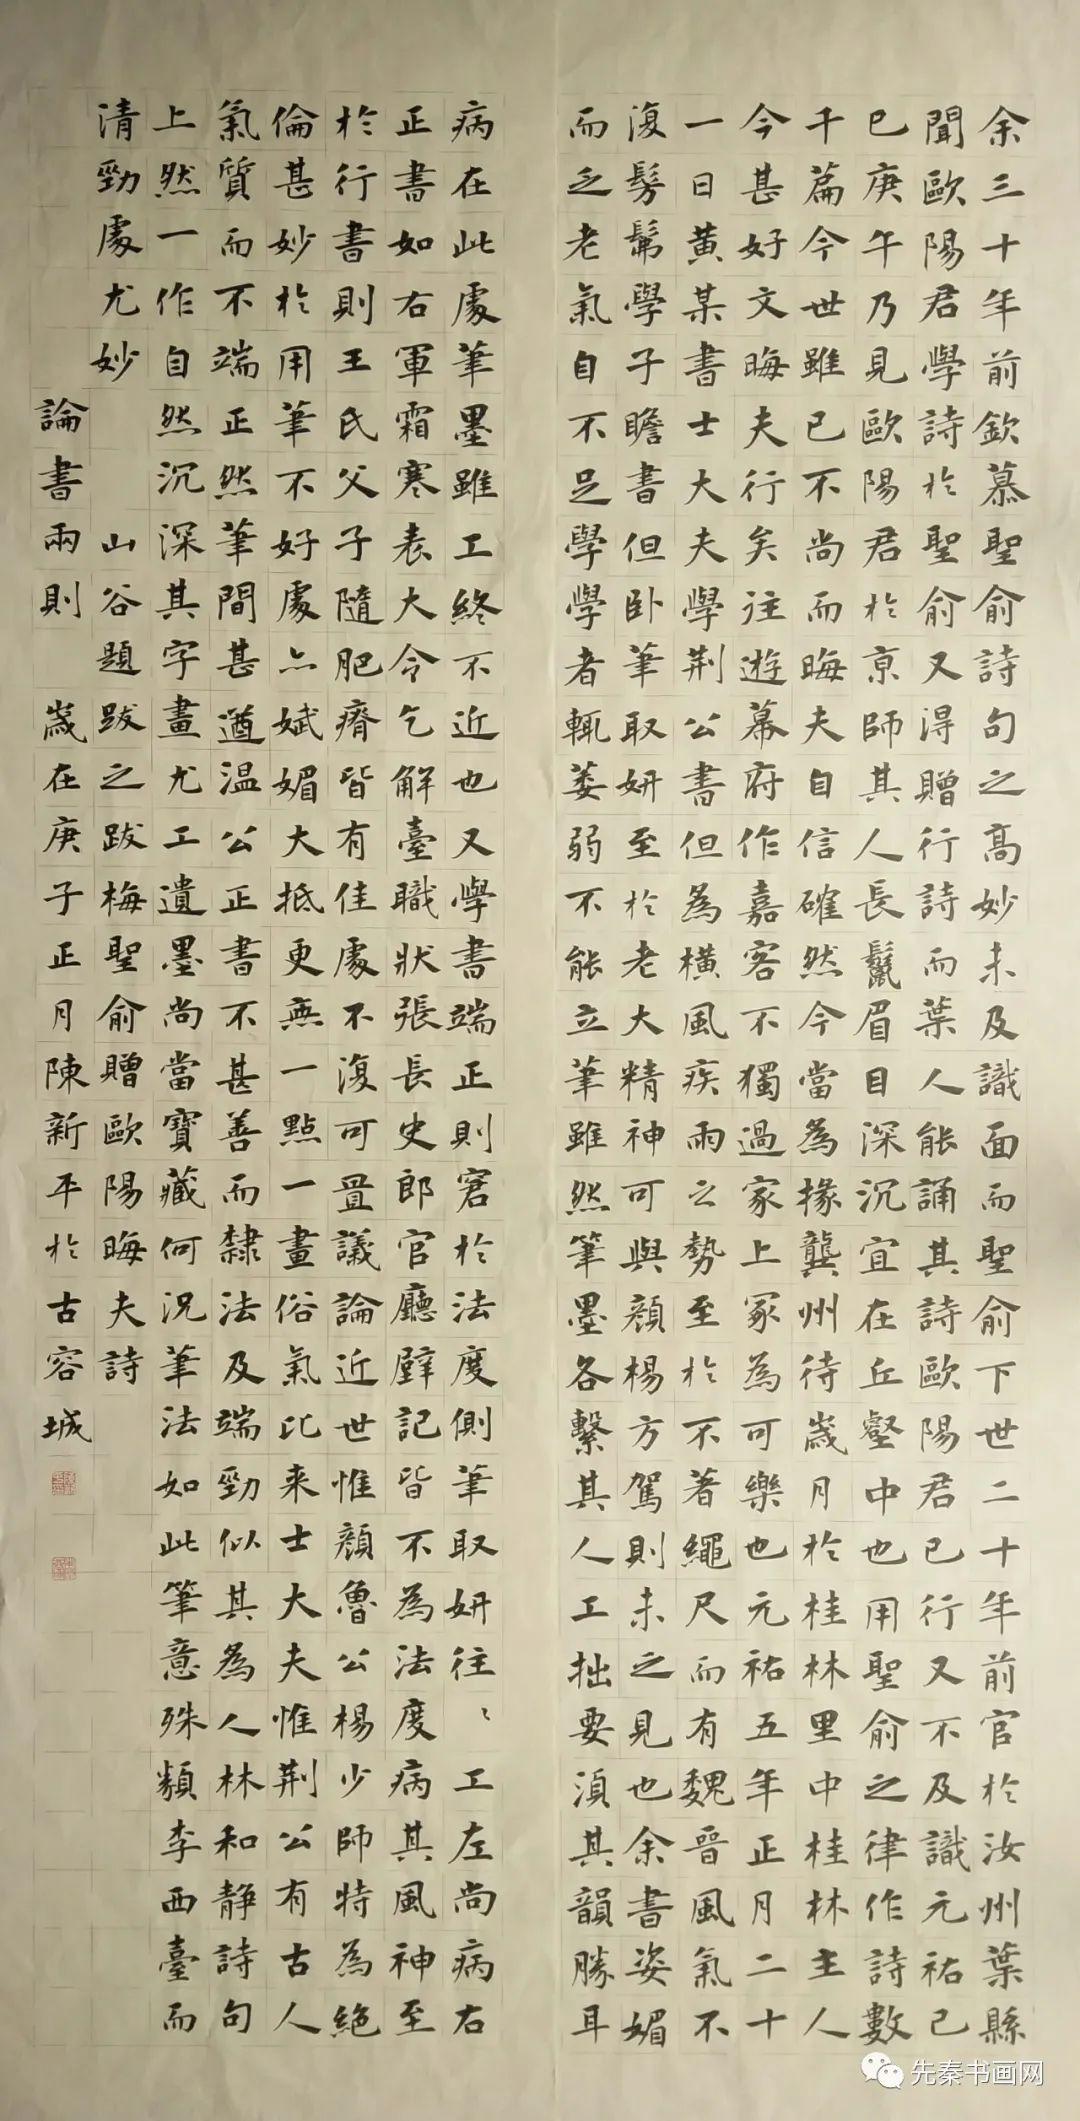 余三十年前欽慕聖俞詩句之高妙未及識面而聖俞下世二十年前官於汝州葉縣
聞歐陽君學詩於聖俞又得贈行詩而葉人能誦其詩歐陽君已行又不及識元祐己
巳庚午乃見歐陽君於京師其人長鬣眉目深沉宜在丘壑中也用聖俞之律作詩數
千篇今世雖已不尚而晦夫自信確然今當為掾龔州待嵗月於桂林里中桂林主人
今甚好文晦夫行矣往遊幕府作嘉客不獨過家上冢為可樂也元祐五年正月二十
一日黃某書士大夫學荆公書但為橫風疾雨之勢至於不著繩尺而有魏晉風氣不
復髣髴學子瞻書但卧筆取妍至於老大精神可與顏楊方駕則未之見也余書姿媚
而乏老氣自不足學學者輒萎弱不能立筆雖然筆墨各繫其人工拙要須其韻勝耳
病在此處筆墨雖工終不近也又學書端正則窘於法度側筆取妍往〻工左尚病右
正書如右軍霜寒表大令乞解臺職狀張長史郎官廳壁記皆不為法度病其風神至
於行書則王氏父子隨肥瘠皆有佳處不復可置議論近世惟顏魯公楊少師特為絕
倫甚妙於用筆不好處亦嫵媚大抵更無一點一畫俗氣比来士大夫惟荆公有古人
氣質而不端正然筆間甚遒温公正書不甚善而隸法及端勁似其為人林和靜詩句
上然一作自然沉深其字畫尤工遺墨尚當寶藏何況筆法如此筆意殊類李西臺而
清勁處尤妙 山谷題跋之跋梅聖俞贈歐陽晦夫詩
論書兩則 嵗在庚子正月陳新平於古容城
先秦书画网